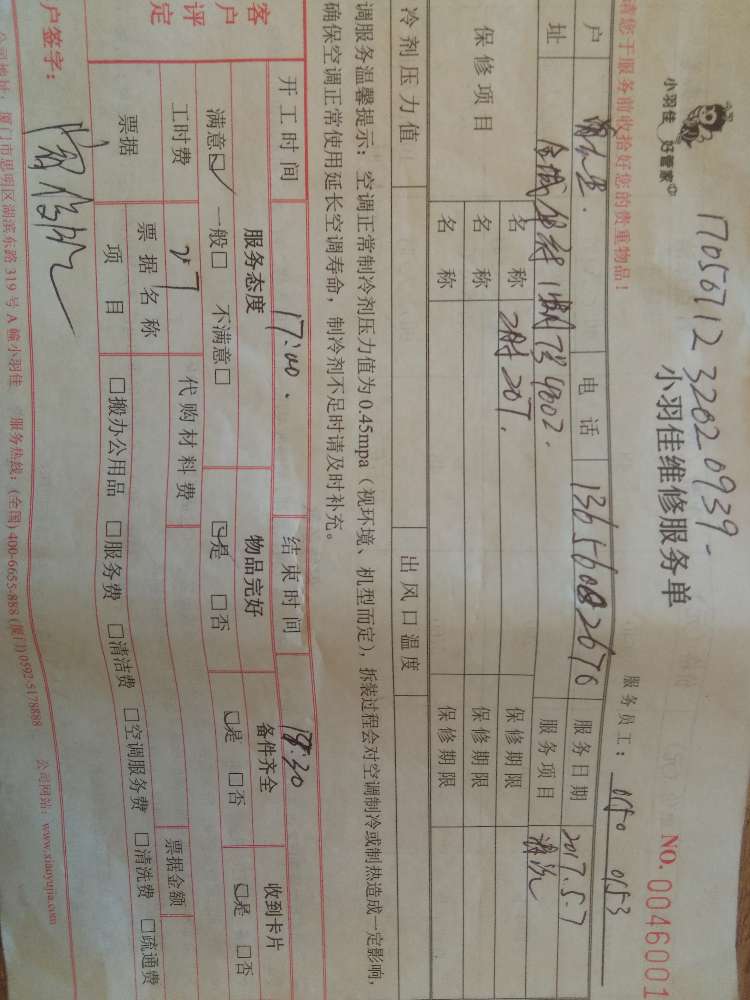 17056712 32020939-
小羽佳 好管家
小羽佳维修服务单
NO. 0046001
服务员工: 0150 0153
请您于服务前收拾好您的贵重物品！
户 电话 13656082676 服务日期 2017.5.7
址 4002. 服务项目 清洗
保修项目 名称 2时 20T. 保修期限
名称 保修期限
名称 保修期限
冷剂压力值 出风口温度
调服务温馨提示：空调正常制冷剂压力值为0.45mpa（视环境、机型而定），拆装过程会对空调制冷或制热造成一定影响，
确保空调正常使用延长空调寿命，制冷剂不足时请及时补充。
开工时间 17:00. 结束时间 18:30
客户评定 服务态度 物品完好 备件齐全 收到卡片
满意□ 一般□ 不满意□ □是 □否 □是 □否 □是 □否
工时费 代购材料费 票据金额
票据 票据名称
项目 □搬办公用品 □服务费 □清洁费 □空调服务费 □清洗费 □疏通费
户签字：
公司地址：厦门市思明区湖滨东路319号A幢小羽佳 服务热线：(全国)400-6655-888 (厦门)0592-5178888 公司网站：www.xiaoyujia.com